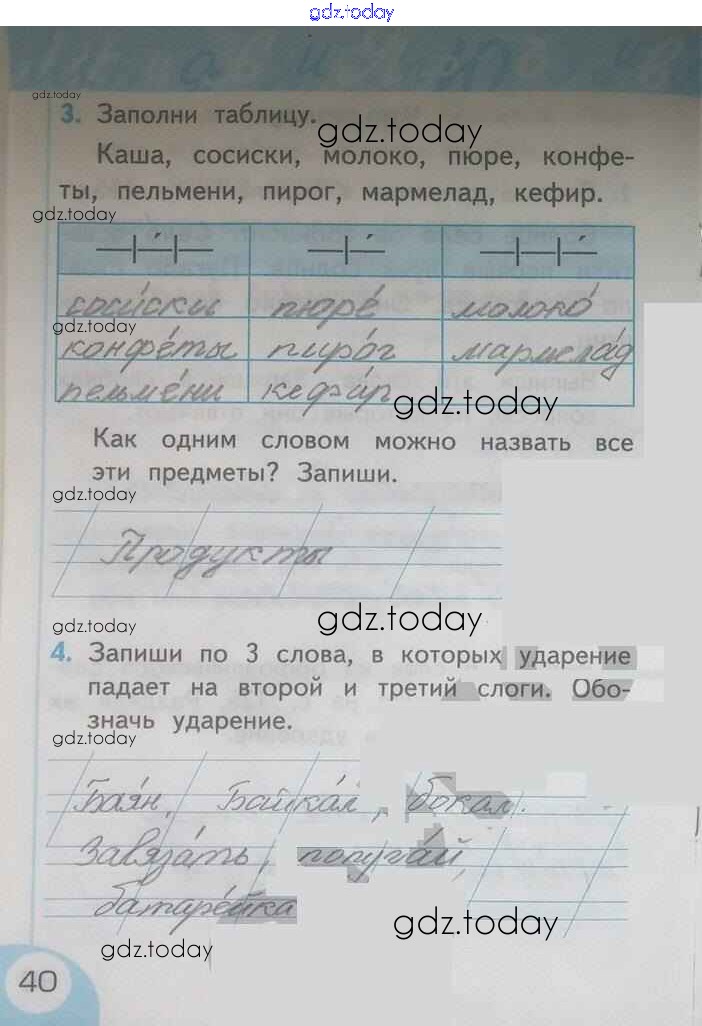 gdz.today
gdz.today
3. Заполни таблицу.
gdz.today
Каша, сосиски, молоко, пюре, конфе-
ты, пельмени, пирог, мармелад, кефир.
gdz.today
соси́ски пюре́ молоко́
gdz.today
конфе́ты пиро́г мармела́д
пельме́ни кефи́р
gdz.today
Как одним словом можно назвать все
эти предметы? Запиши.
gdz.today
Продукты
gdz.today
gdz.today
4. Запиши по 3 слова, в которых ударение
падает на второй и третий слоги. Обо-
значь ударение.
gdz.today
Бая́н, Байка́л, бокал.
Завяза́ть, попуга́й,
батаре́йка
gdz.today
gdz.today
40